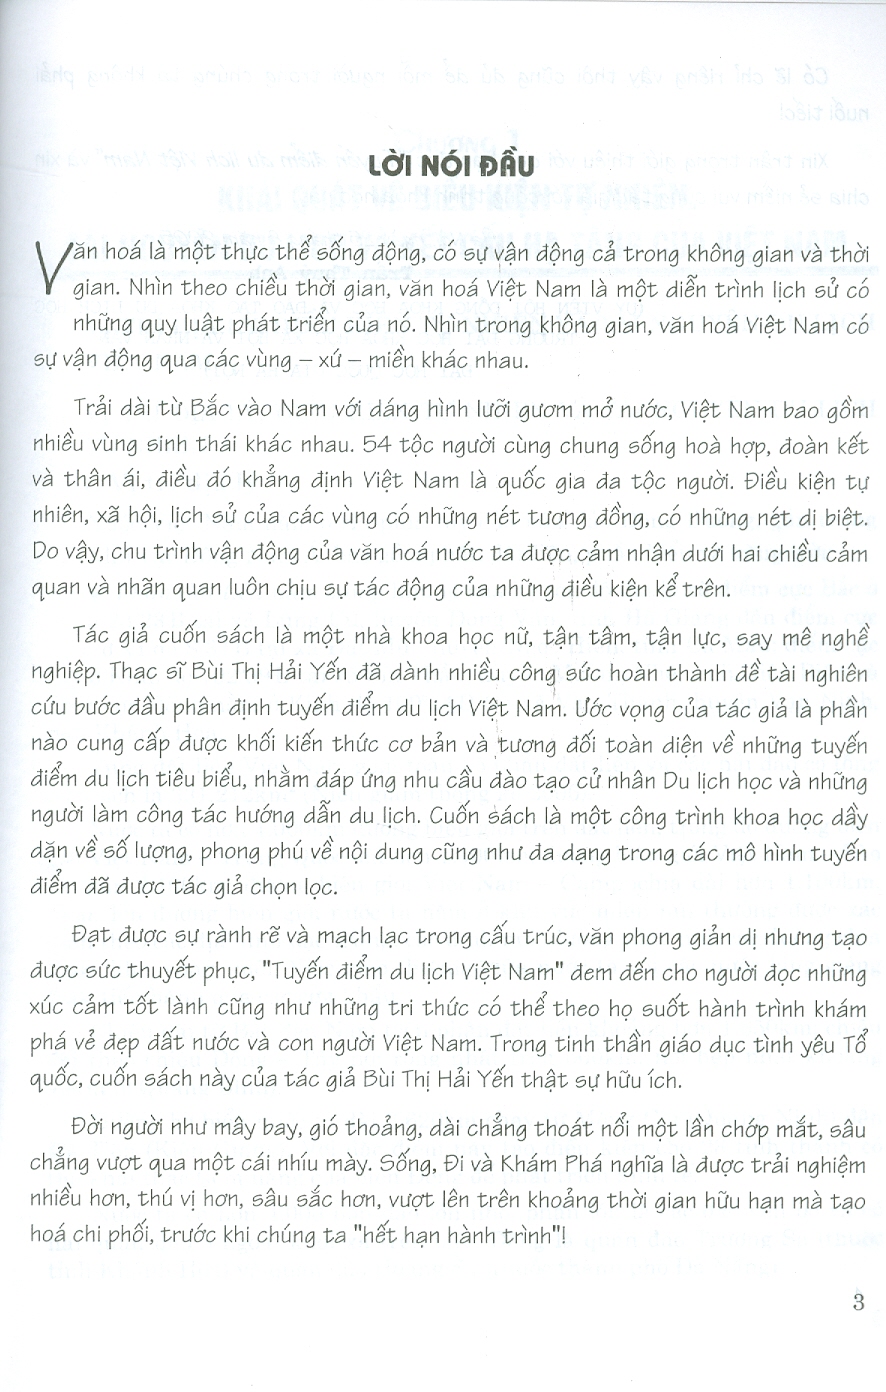 LỜI NÓI ĐẦU
Văn hoá là một thực thể sống động, có sự vận động cả trong không gian và thời
gian. Nhìn theo chiều thời gian, văn hoá Việt Nam là một diễn trình lịch sử có
những quy luật phát triển của nó. Nhìn trong không gian, văn hoá Việt Nam có
sự vận động qua các vùng – xứ – miền khác nhau.
Trải dài từ Bắc vào Nam với dáng hình lưỡi gươm mở nước, Việt Nam bao gồm
nhiều vùng sinh thái khác nhau. 54 tộc người cùng chung sống hoà hợp, đoàn kết
và thân ái, điều đó khẳng định Việt Nam là quốc gia đa tộc người. Điều kiện tự
nhiên, xã hội, lịch sử của các vùng có những nét tương đồng, có những nét dị biệt.
Do vậy, chu trình vận động của văn hoá nước ta được cảm nhận dưới hai chiều cảm
quan và nhãn quan luôn chịu sự tác động của những điều kiện kể trên.
Tác giả cuốn sách là một nhà khoa học nữ, tận tâm, tận lực, say mê nghề
nghiệp. Thạc sĩ Bùi Thị Hải Yến đã dành nhiều công sức hoàn thành đề tài nghiên
cứu bước đầu phân định tuyến điểm du lịch Việt Nam. Ước vọng của tác giả là phần
nào cung cấp được khối kiến thức cơ bản và tương đối toàn diện về những tuyến
điểm du lịch tiêu biểu, nhằm đáp ứng nhu cầu đào tạo cử nhân Du lịch học và những
người làm công tác hướng dẫn du lịch. Cuốn sách là một công trình khoa học dầy
dặn về số lượng, phong phú về nội dung cũng như đa dạng trong các mô hình tuyến
điểm đã được tác giả chọn lọc.
Đạt được sự rành rẽ và mạch lạc trong cấu trúc, văn phong giản dị nhưng tạo
được sức thuyết phục, "Tuyến điểm du lịch Việt Nam" đem đến cho người đọc những
xúc cảm tốt lành cũng như những tri thức có thể theo họ suốt hành trình khám
phá vẻ đẹp đất nước và con người Việt Nam. Trong tinh thần giáo dục tình yêu Tổ
quốc, cuốn sách này của tác giả Bùi Thị Hải Yến thật sự hữu ích.
Đời người như mây bay, gió thoảng, dài chẳng thoát nổi một lần chớp mắt, sâu
chẳng vượt qua một cái nhíu mày. Sống, Đi và Khám Phá nghĩa là được trải nghiệm
nhiều hơn, thú vị hơn, sâu sắc hơn, vượt lên trên khoảng thời gian hữu hạn mà tạo
hoá chi phối, trước khi chúng ta "hết hạn hành trình"!
3